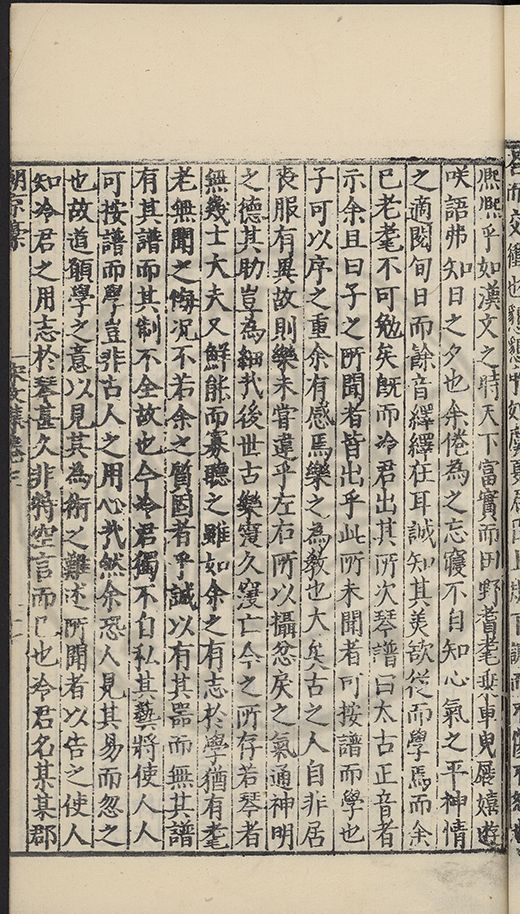 熈熈乎如漢文之時天下富實而田野耆耄乗車曵屐嬉遊
咲語弗知日之夕也余倦為之忘寢不自知心氣之平神情
之適閱旬日而餘音繹繹在耳誠知其美欲從而學焉而余
已老耄不可勉矣旣而冷君出其所次琴譜曰太古正音者
示余且曰子之所聞者皆出乎此所未聞者可按譜而學也
子可以序之重余有感焉樂之為敎也大矣古之人自非居
喪服有異故則樂未甞違乎左右所以攝忿戾之氣通神明
之德其助豈為細㢤後世古樂寖久寖亡今之所存若琴者
無幾士大夫又鮮能而寡聽之雖如余之有志於學猶有耄
老無聞之悔况不若余之質固者乎誠以有其噐而無其譜
有其譜而其制不全故也今冷君獨不自私其藝將使人人
可按譜而學豈非古人之用心㢤然余恐人見其易而忽之
也故道願學之意以見其為術之難述所聞者以告之使人
知冷君之用志於琴甚久非特空言而已也冷君名某某郡